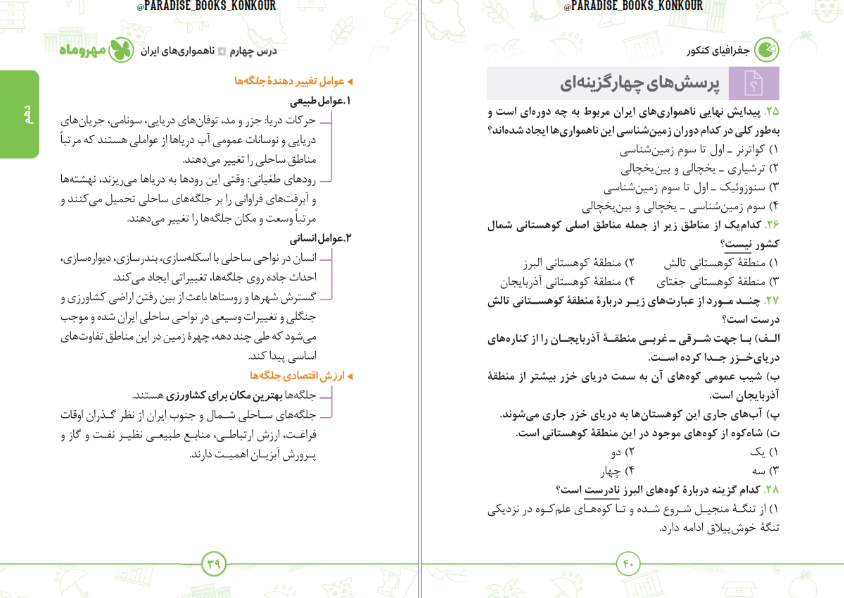 @PARADISE_BOOKS_KONKOUR
درس چهارم ناهمواری‌های ایران
مهروماه
دهم
عوامل تغییر دهندهٔ جلگه‌ها
۱.عوامل طبیعی
حرکات دریا: جزر و مد، توفان‌های دریایی، سونامی، جریان‌های
دریایی و نوسانات عمومی آب دریاها از عواملی هستند که مرتباً
مناطق ساحلی را تغییر می‌دهند.
رودهای طغیانی: وقتی این رودها به دریاها می‌ریزند، نهشته‌ها
و آبرفت‌های فراوانی را بر جلگه‌های ساحلی تحمیل می‌کنند و
مرتباً وسعت و مکان جلگه‌ها را تغییر می‌دهند.
۲.عوامل انسانی
انسان در نواحی ساحلی با اسکله‌سازی، بندرسازی، دیواره‌سازی،
احداث جاده روی جلگه‌ها، تغییراتی ایجاد می‌کند.
گسترش شهرها و روستاها باعث از بین رفتن اراضی کشاورزی و
جنگلی و تغییرات وسیعی در نواحی ساحلی ایران شده و موجب
می‌شود که طی چند دهه، چهرهٔ زمین در این مناطق تفاوت‌های
اساسی پیدا کند.
ارزش اقتصادی جلگه‌ها
جلگه‌ها بهترین مکان برای کشاورزی هستند.
جلگه‌های ساحلی شمال و جنوب ایران از نظر گذران اوقات
فراغت، ارزش ارتباطی، منابع طبیعی نظیر نفت و گاز و
پرورش آبزیان اهمیت دارند.
۳۹
@PARADISE_BOOKS_KONKOUR
جغرافیای کنکور
پرسش‌های چهارگزینه‌ای
۲۵. پیدایش نهایی ناهمواری‌های ایران مربوط به چه دوره‌ای است و
به‌طور کلی در کدام دوران زمین‌شناسی این ناهمواری‌ها ایجاد شده‌اند؟
۱) کواترنر ـ اول تا سوم زمین‌شناسی
۲) ترشیاری ـ یخچالی و بین‌یخچالی
۳) سنوزوئیک ـ اول تا سوم زمین‌شناسی
۴) سوم زمین‌شناسی ـ یخچالی و بین‌یخچالی
۲۶. کدام‌یک از مناطق زیر از جمله مناطق اصلی کوهستانی شمال
کشور نیست؟
۱) منطقهٔ کوهستانی تالش ۲) منطقهٔ کوهستانی البرز
۳) منطقهٔ کوهستانی جغتای ۴) منطقهٔ کوهستانی آذربایجان
۲۷. چند مورد از عبارت‌های زیر دربارهٔ منطقهٔ کوهستانی تالش
درست است؟
الف) با جهت شرقی ـ غربی منطقهٔ آذربایجان را از کناره‌های
دریای‌خزر جدا کرده است.
ب) شیب عمومی کوه‌های آن به سمت دریای خزر بیشتر از منطقهٔ
آذربایجان است.
پ) آب‌های جاری این کوهستان‌ها به دریای خزر جاری می‌شوند.
ت) شاه‌کوه از کوه‌های موجود در این منطقهٔ کوهستانی است.
۱) یک ۲) دو
۳) سه ۴) چهار
۲۸. کدام گزینه دربارهٔ کوه‌های البرز نادرست است؟
۱) از تنگهٔ منجیل شروع شده و تا کوه‌های علم‌کوه در نزدیکی
تنگهٔ خوش‌ییلاق ادامه دارد.
۴۰